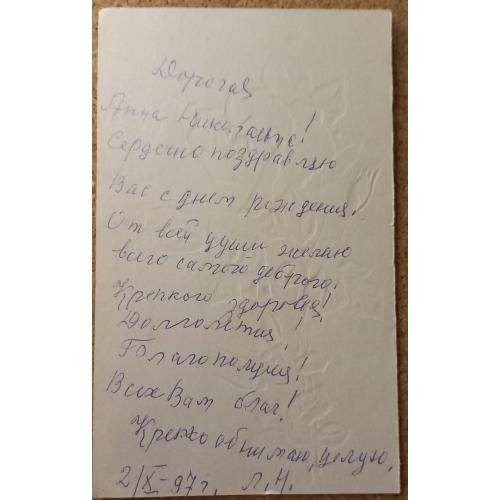 Дорогая
Анна Николаевна!
Сердечно поздравляю
Вас с днем рождения.
От всей души желаю
всего самого доброго.
Крепкого здоровья!
Долголетия!
Благополучия!
Всех Вам благ!
Крепко обнимаю, целую,
2/X-97г. Л.Н.